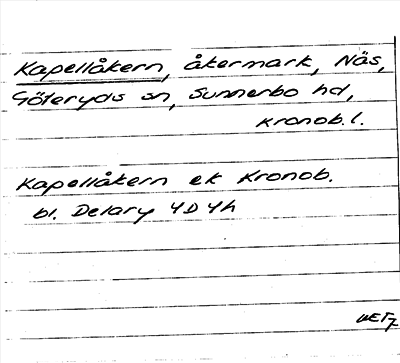 Kapellåkern, åkermark, Näs,
Göteryds sn, Sunnerbo hd,
Kronob.l.
Kapellåkern ek Kronob.
bl. Delary 4D 4h